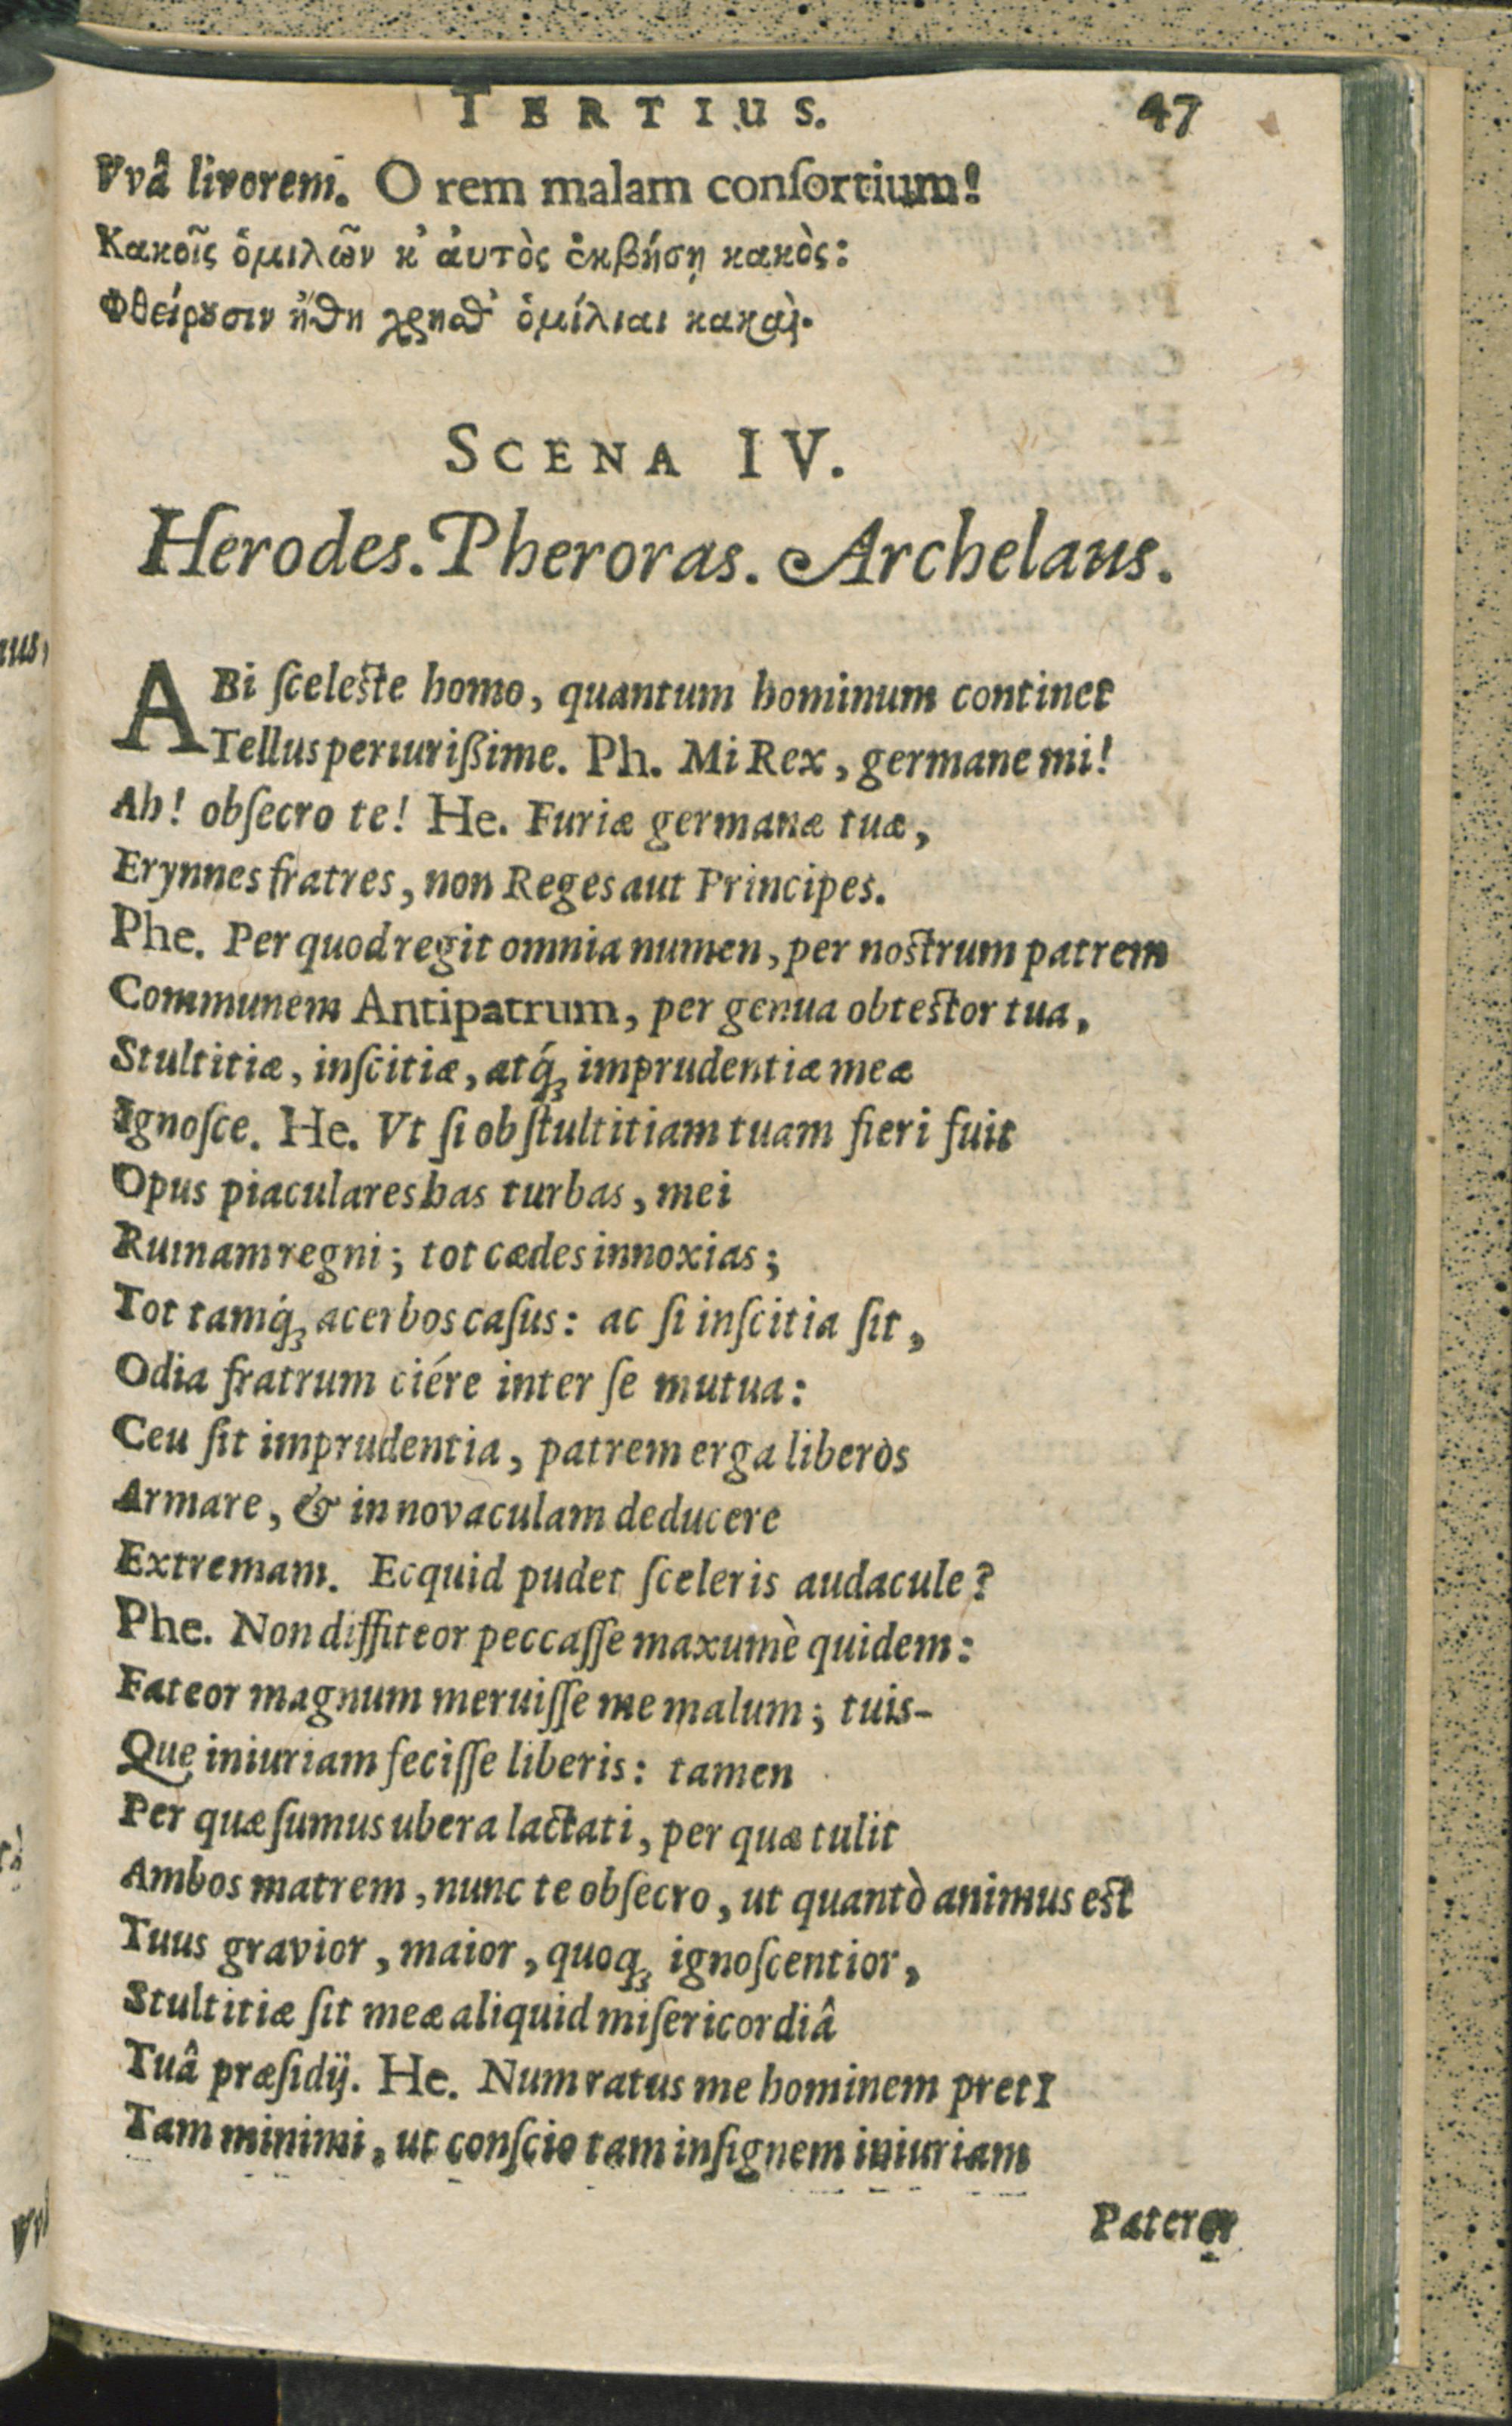 TERTIUS. 47
Vvâ livorem. O rem malam conſortium!
Κακοῖς ὁμιλῶν κ' ἀυτὸς ἐκβήσῃ κακὸς:
Φθείρουσιν ἤθη χρησθ' ὁμίλιαι κακαὶ.
SCENA IV.
Herodes. Pheroras. Archelaus.
ABi ſceleſte homo, quantum hominum continet
Tellus periurißime. Ph. Mi Rex, germane mi!
Ah! obſecro te! He. Furiæ germanæ tuæ,
Erynnes fratres, non Reges aut Principes.
Phe. Per quod regit omnia numen, per noſtrum patrem
Communem Antipatrum, per genua obteſtor tua,
Stultitiæ, inſcitiæ, atq́ꝫ imprudentiæ meæ
Ignoſce. He. Vt ſi ob ſtultitiam tuam fieri fuit
Opus piaculares has turbas, mei
Ruinam regni; tot cædes innoxias;
Tot tamq́ꝫ acerbos caſus: ac ſi inſcitia ſit,
Odia fratrum ciére inter ſe mutua:
Ceu ſit imprudentia, patrem erga liberos
Armare, & in novaculam deducere
Extremam. Ecquid pudet ſceleris audacule?
Phe. Non diffiteor peccaſſe maxumè quidem:
Fateor magnum meruiſſe me malum; tuis-
Que iniuriam feciſſe liberis: tamen
Per quæ ſumus ubera lactati, per quæ tulit
Ambos matrem, nunc te obſecro, ut quantò animus eſt
Tuus gravior, maior, quoqꝫ ignoſcentior,
Stultitiæ ſit meæ aliquid miſericordiâ
Tuâ præſidij. He. Num ratus me hominem pretI
Tam minimi, ut conſcio tam inſignem iniuriam
Paterer